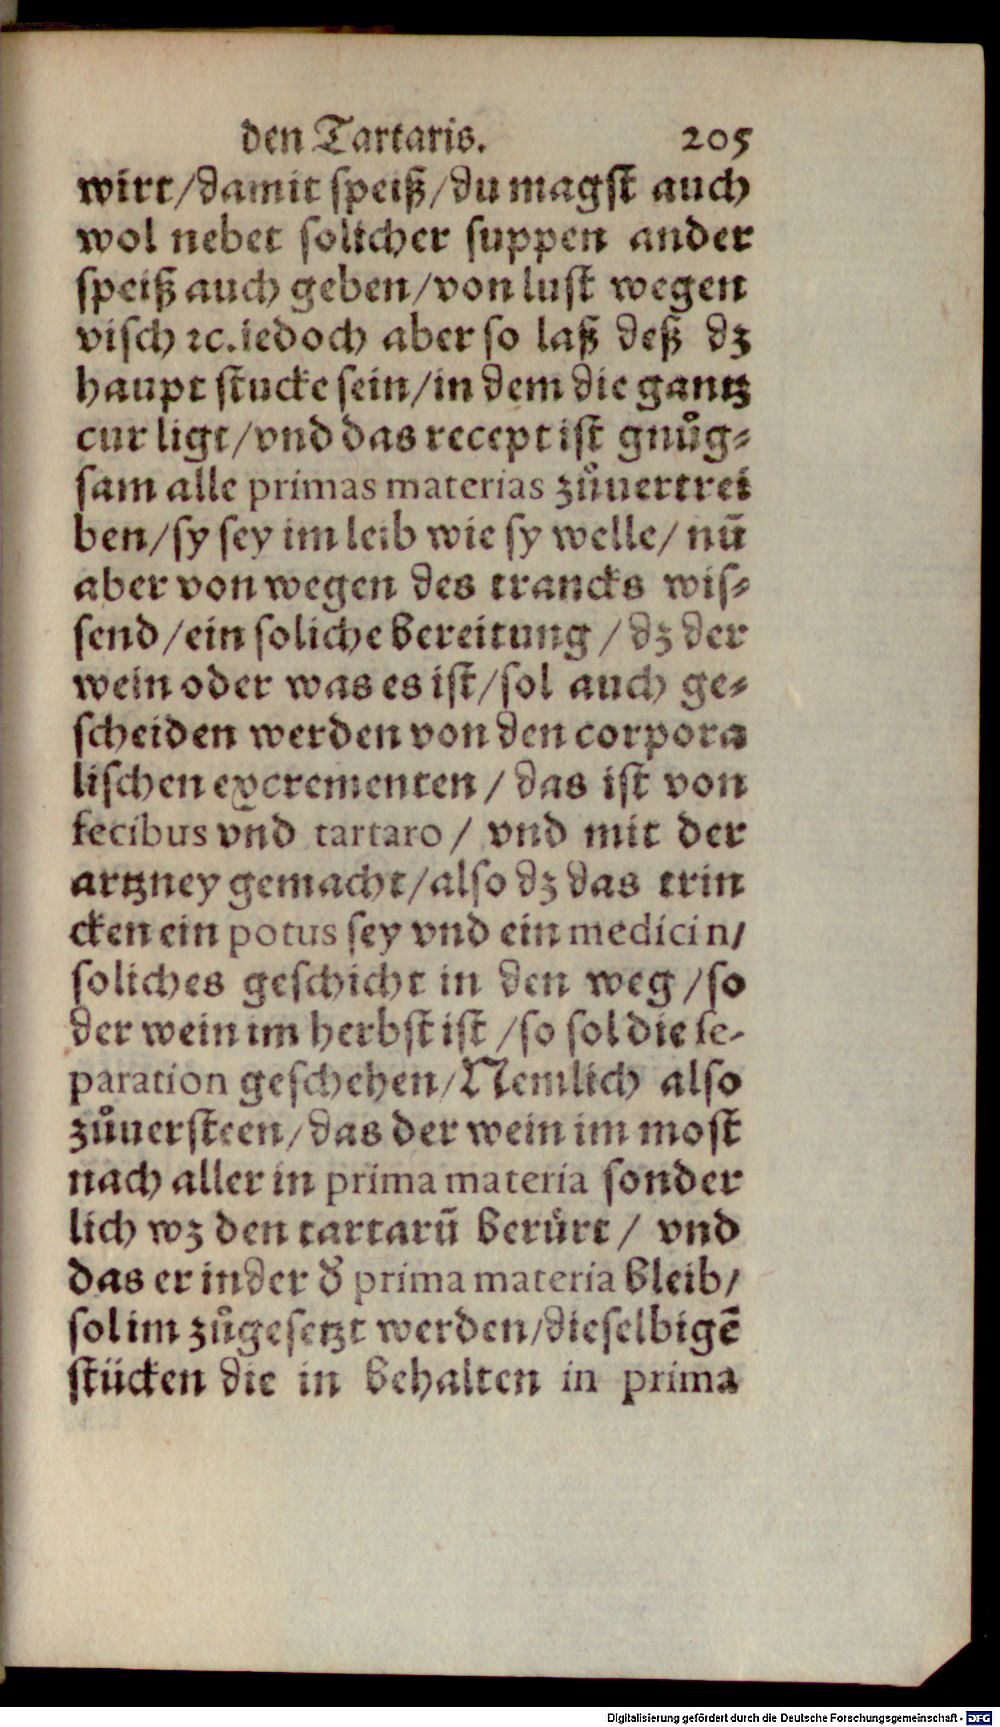 den Tartaris. 205
wirt/damit speiß/du magst auch
wol nebet solicher suppen ander
speiß auch geben/von lust wegen
visch ꝛc.iedoch aber so laß deß dz
haupt stucke sein/in dem die gantz
cur ligt/vnd das recept ist gnuͦg⸗
sam alle primas materias zuͦuertrei
ben/sy sey im leib wie sy welle/ nū
aber von wegen des trancks wis⸗
send/ein soliche bereitung/dz der
wein oder was es ist/sol auch ge⸗
scheiden werden von den corpora
lischen excrementen/ das ist von
fecibus vnd tartaro/ vnd mit der
artzney gemacht/also dz das trin
cken ein potus sey vnd ein medicin/
soliches geschicht in den weg/so
der wein im herbst ist/so sol die se-
paration geschehen/Nemlich also
zuͦuersteen/das der wein im most
nach aller in prima materia sonder
lich wz den tartarū beruͤrt/ vnd
das er in der d̕ prima materia bleib/
sol im zuͦgesetzt werden/dieselbigē
stücken die in behalten in prima
Digitalisierung gefördert durch die Deutsche Forschungsgemeinschaft - DFG